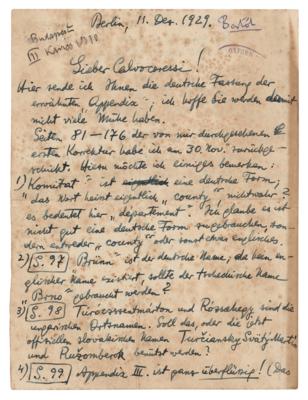 Berlin, 11. Dez. 1929.
Bartók
Budapest
III
Lieber Calvocoressi!
Hier sende ich Ihnen die deutsche Fassung der
erwähnten Appendix; ich hoffe Sie werden damit
nicht viel Mühe haben.
Seiten 81–176 der von mir durchgesehenen
ersten Korrektur habe ich am 30. Nov. zurückge-
schickt. Hierzu möchte ich einiges bemerken:
1) „Komitat" ist eigentlich eine deutsche Form;
das Wort heisst eigentlich „county" nichtwahr?
es bedeutet hier „departement". Ich glaube es ist
nicht gut eine deutsche Form zu gebrauchen, son-
dern entweder „county" oder sonst etwas englisches.
2) S. 97 „Brünn" ist der deutsche Name; da kein en-
glischer Name existiert, sollte der tschechische Name
„Brno" gebraucht werden?
3) S. 98 Turócszentmárton und Rózsahegy sind die
ungarischen Ortsnamen. Soll das, oder die jetzt
offiziellen slovakischen Namen Turčiansky Svätý Mart.
und Ružomberok benützt werden?
4) S. 99 Appendix III. ist ganz überflüssig! (Das